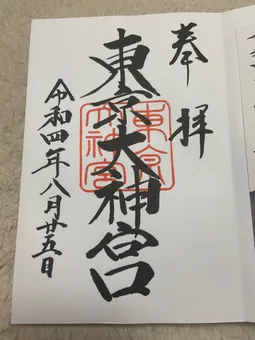 奉拝
東京大神宮
令和四年八月廿五日
東京
大神宮